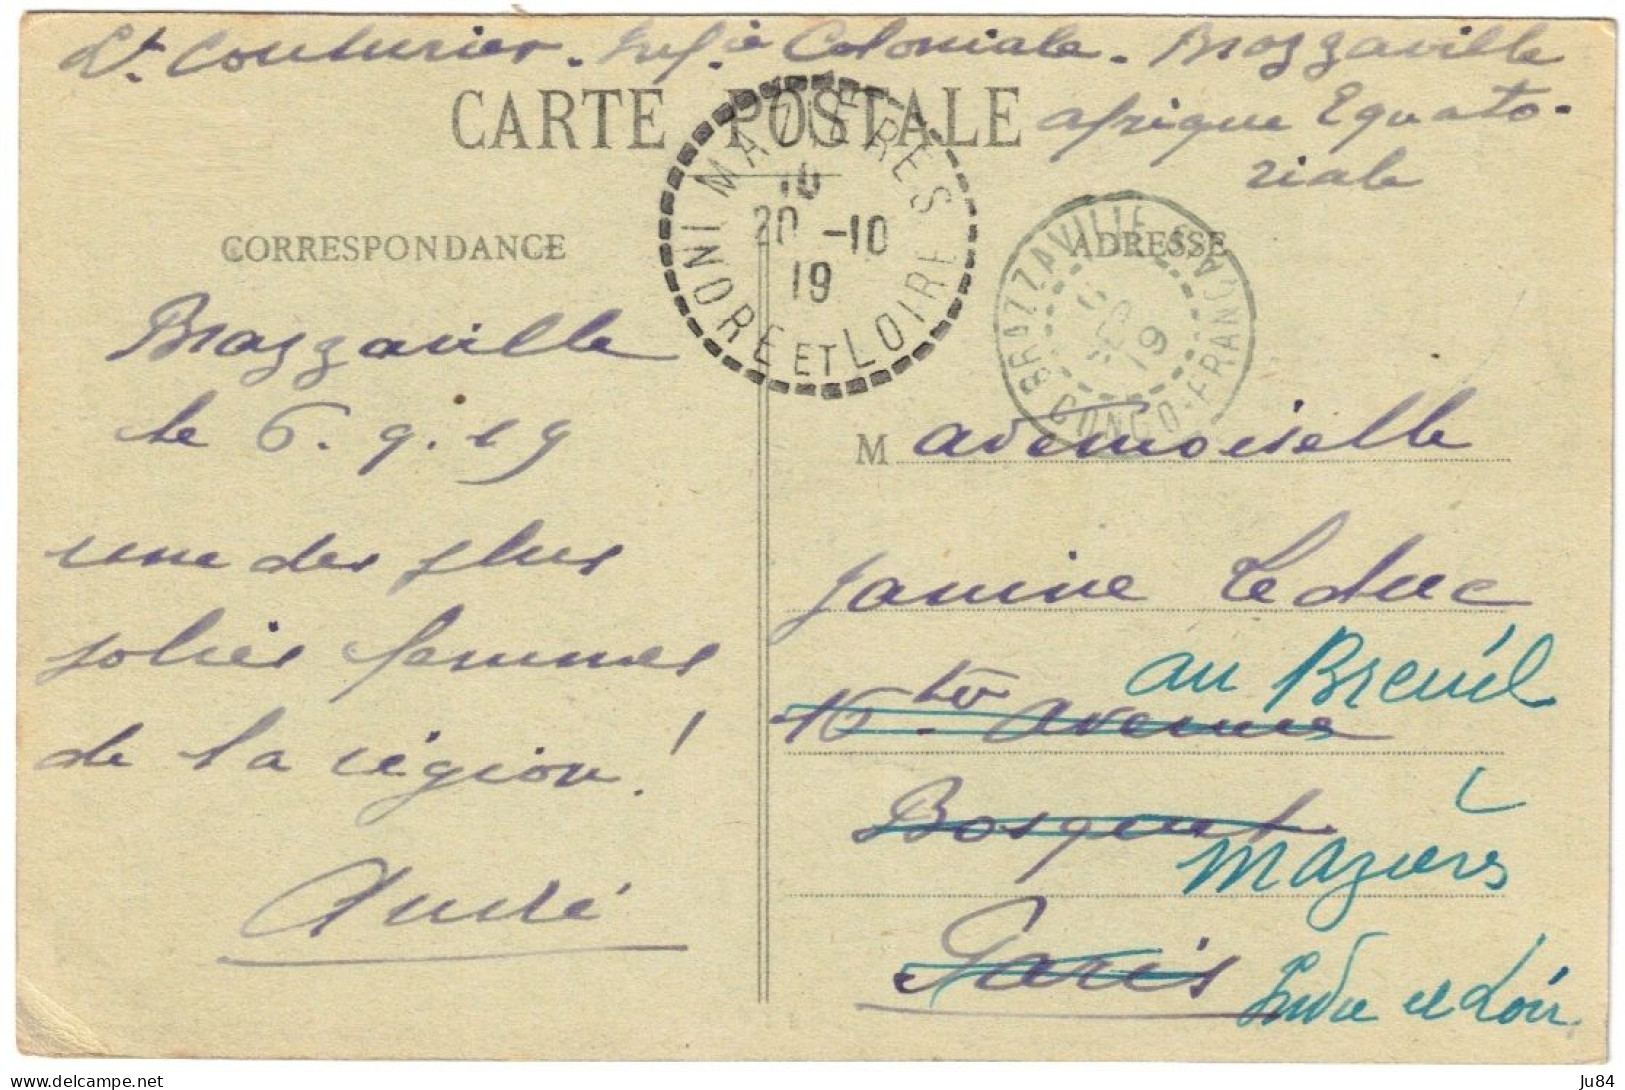 Lt Couturier - Infie Coloniale - Brazzaville
Afrique Equato-
riale
CARTE POSTALE
MAZIERES
INDRE ET LOIRE
10
20 -10
19
BRAZZAVILLE
CONGO-FRANCAIS
19
CORRESPONDANCE
ADRESSE
Brazzaville
le 6.9.19
une des plus
jolies femmes
de la région !
André
Mademoiselle
Janine Leduc
au Breuil
16 ter Avenue
Bosquet
Mazières
Paris
Indre et Loir
Ju84